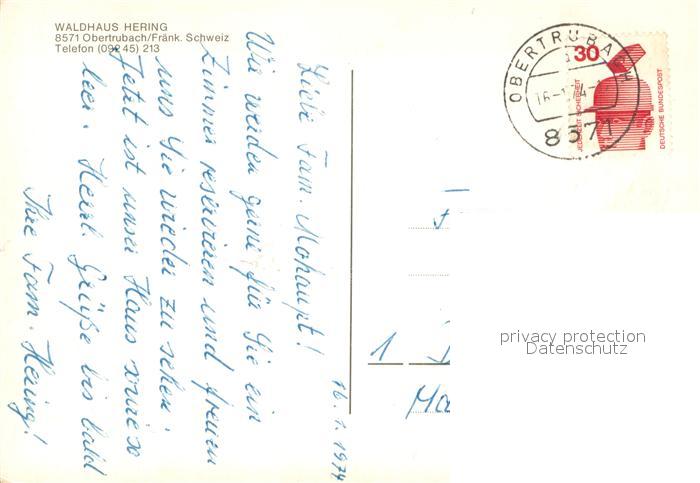 WALDHAUS HERING
8571 Obertrubach/Fränk. Schweiz
Telefon (09245) 213
16.1.1974
Liebe Fam. Mohaupt!
Wir werden gerne für Sie ein
Zimmer reservieren und freuen
uns Sie wieder zu sehen.
Jetzt ist unser Haus sowieso
leer. Herzl. Grüße bis bald
Ihre Fam. Hering!
OBERTRUBACH
16.-1.74
8571
30
JEDERZEIT SICHERHEIT
DEUTSCHE BUNDESPOST
1
Ma
privacy protection
Datenschutz